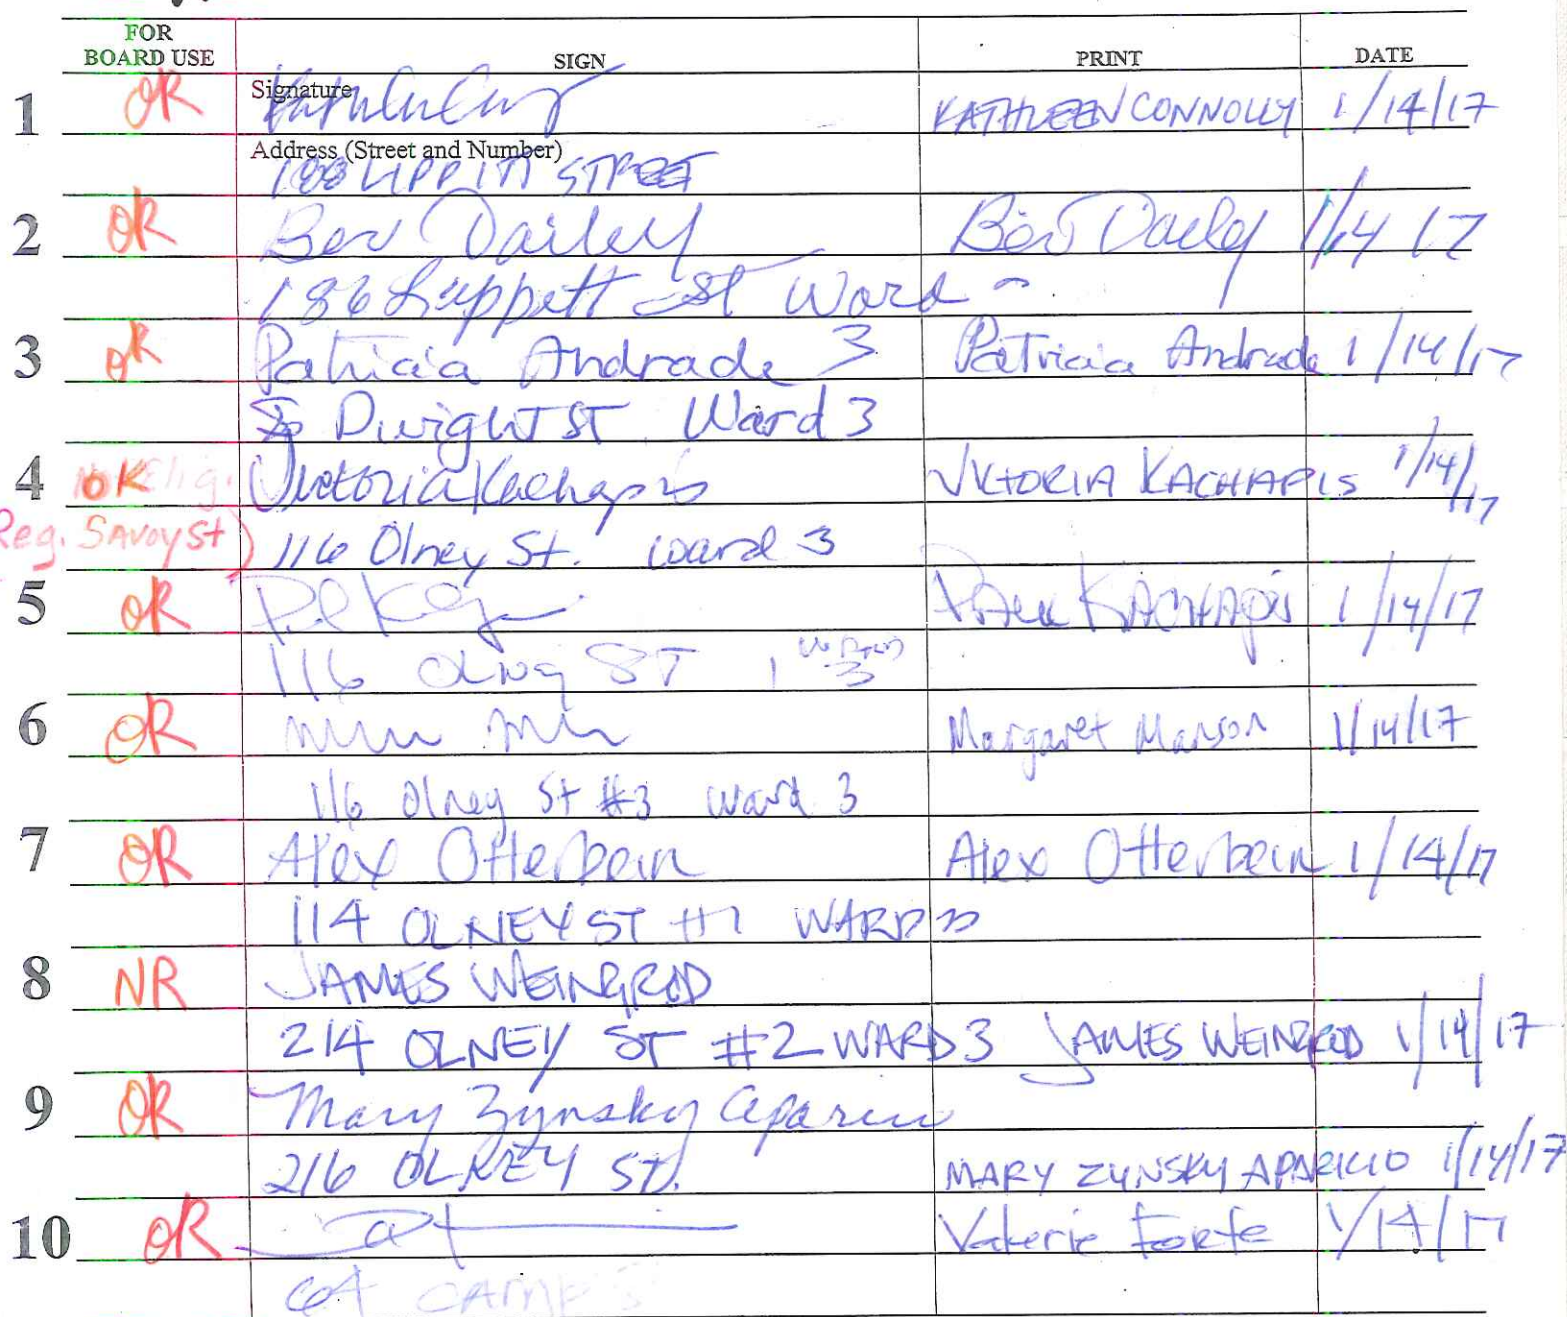 FOR BOARD USE SIGN PRINT DATE
1 OK Signature KATHLEEN CONNOLLY 1/14/17
Address (Street and Number)
188 LIPPITT STREET
2 OK Bev Dailey Bev Dailey 1/14 17
186 Lippitt St Ward
3 OK Patricia Andrade 3 Patricia Andrade 1/14/17
Dwight ST Ward 3
4 OK Elig. Victoria Kachapis VIKTORIA KACHAPIS 1/14/17
Reg. SAVOY St) 116 Olney St. ward 3
5 OK KACHAPIS 1/14/17
116 Olney ST WARD 3
6 OK Margaret Manson 1/14/17
116 Olney St #3 Ward 3
7 OK Alex Otterbein Alex Otterbein 1/14/17
114 OLNEY ST #1 WARD 3
8 NR JAMES WEINGROD
214 OLNEY ST #2 WARD 3 JAMES WEINGROD 1/14/17
9 OK Mary Zynsky Aparicio
216 OLNEY ST. MARY ZYNSKY APARICIO 1/14/17
10 OK Valerie Forte 1/14/17
64 CAMP S